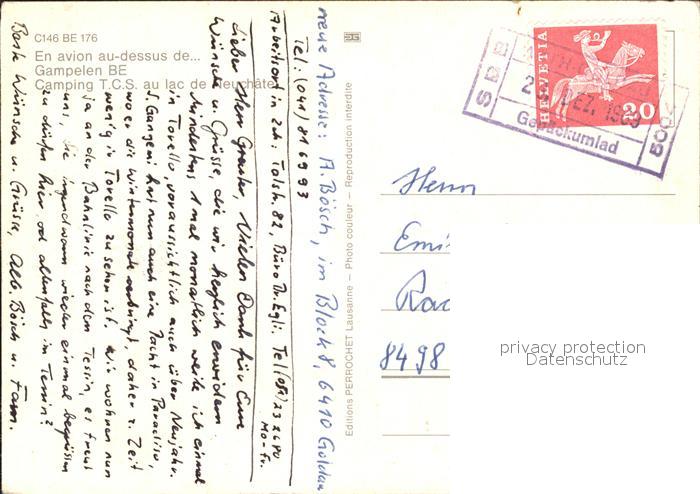 C146 BE 176
En avion au-dessus de...
Gampelen BE
Camping T.C.S. au lac de Neuchâtel
neue Adresse: A. Bösch, im Block 8, 6410 Goldau
Tel: (041) 81 69 93
Arbeitsort in Zch: Talstr. 82, Büro Dr. Egli. Tel (051) 23 26 40
Mo-Fr.
Lieber Herr Grauter, Vielen Dank für Eure
Wünsche u. Grüsse, die wir herzlich erwidern.
Mindestens 1 mal monatlich weile ich einmal
in Torello, voraussichtlich auch über Neujahr.
S. Gangeni hat nun auch eine Yacht in Paradiso,
wo er die Wintermonate verbringt, daher z. Zeit
wenig in Torello zu sehen ist. Wir wohnen nun
ja an der Bahnlinie nach dem Tessin, es freut
uns, Sie irgendwann wieder einmal begrüssen
zu dürfen hier od allenfalls im Tessin?
Beste Wünsche u. Grüsse, Alb. Bösch u. Fam.
Editions PERROCHET Lausanne — Photo couleur — Reproduction interdite
HELVETIA
20
SBB
DEZ. 1969
Gepäckumlad
Herrn
Emi
8498
privacy protection
Datenschutz